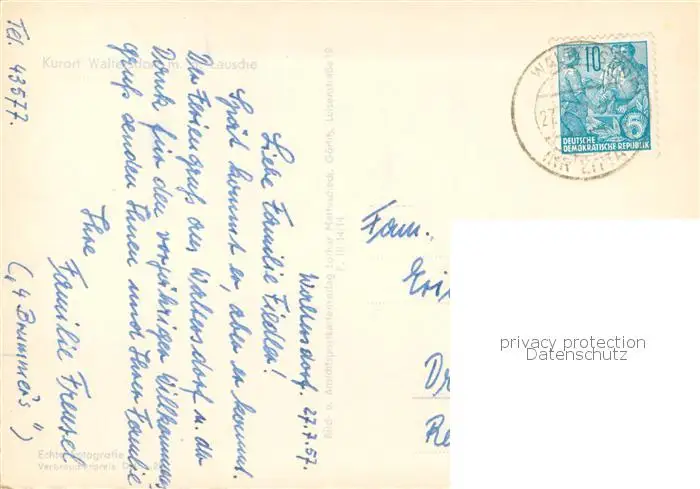 Tel. 43577.
Kurort Waltersdorf m. Lausche
Waltersdorf. 27.7.57.
Liebe Familie Fiedler!
Spät kommt er, aber er kommt.
Der Feriengruß aus Waltersdorf u. der
Dank für den vorjährigen Willkommens-
gruß senden Ihnen und Ihrer Familie
Ihre
Familie Frensel
("4 Brummer's")
Echte Fotografie
Verbraucherpreis
Bild- u. Ansichtspostkartenverlag Lothar Mattscheck, Görlitz, Luisenstraße 19
10
5
DEUTSCHE
DEMOKRATISCHE REPUBLIK
27.
Fam.
Dr
privacy protection
Datenschutz